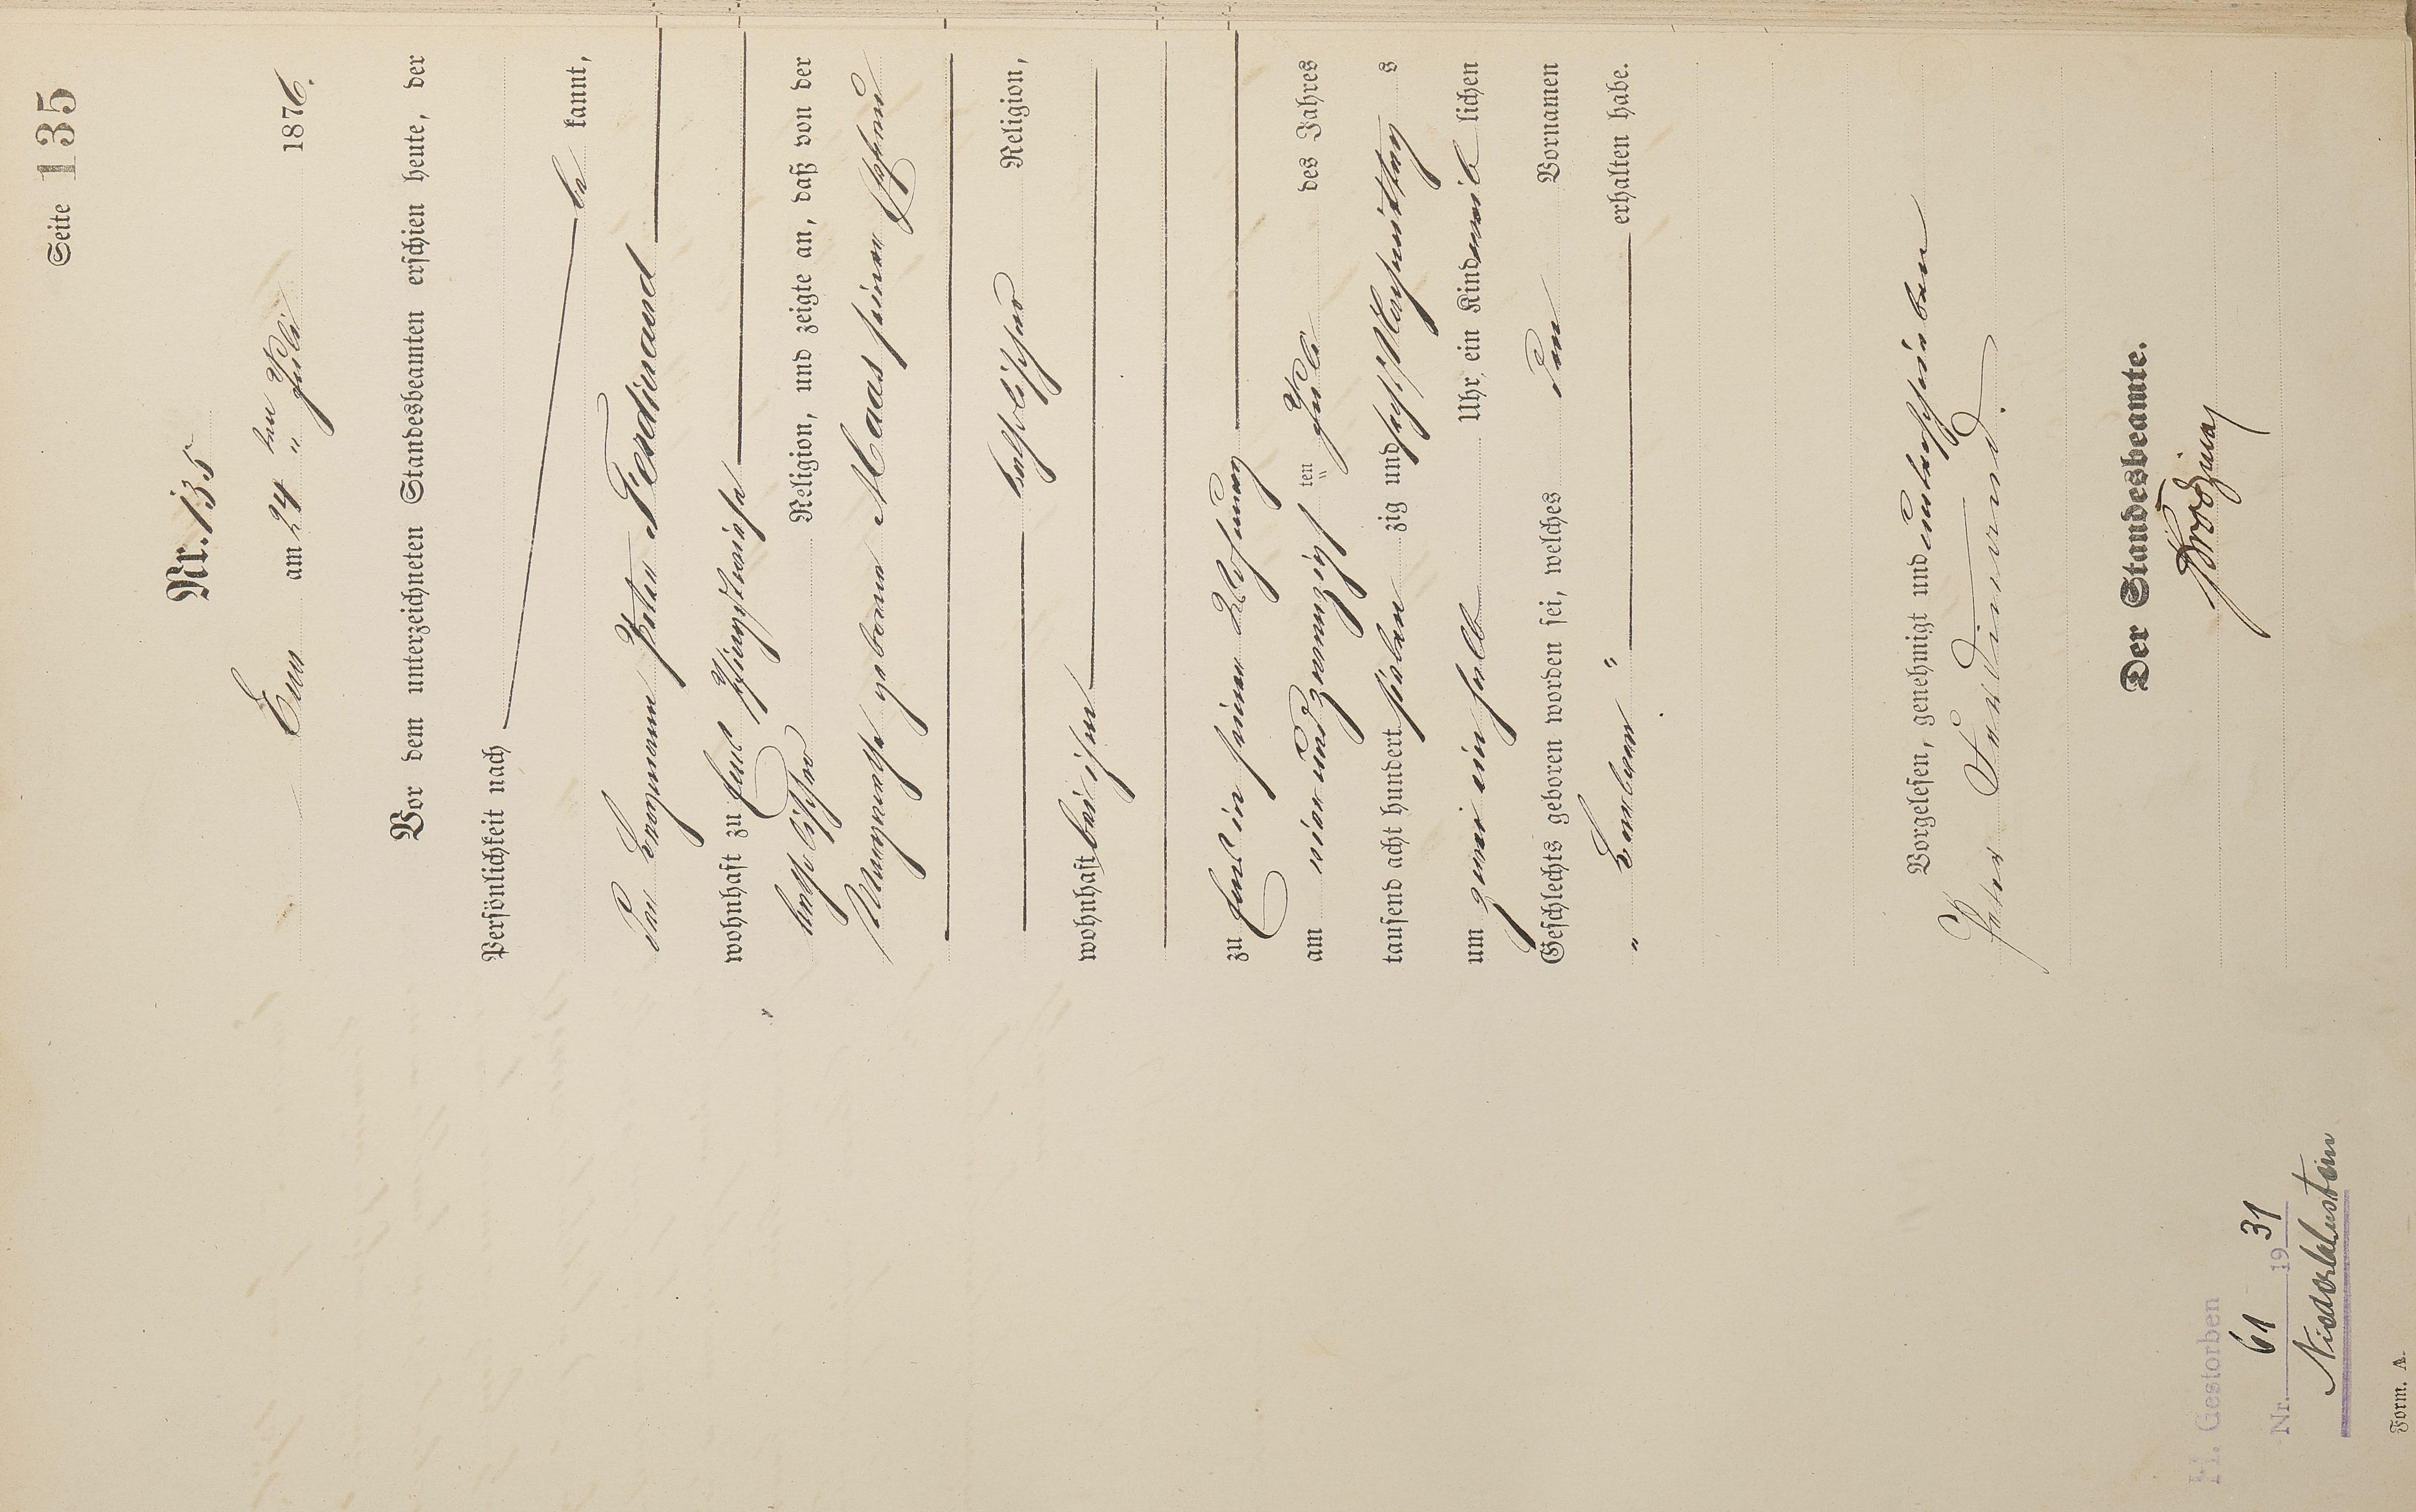 Seite 135
Nr. 135
Ems am 24 ten Juli 1876.
Vor dem unterzeichneten Standesbeamten erschien heute, der
Persönlichkeit nach
be kannt,
der Bergmann Peter Ferdinand
wohnhaft zu Ems
katholischer Religion, und zeigte an, daß von der
Margarethe geborene Maas seiner Ehefrau
katholischer Religion,
wohnhaft bei ihm
zu Ems in seiner Wohnung
am vierundzwanzigsten Juli des Jahres
tausend acht hundert sieben zig und sechs Nachmittag s
um zwei ein halb Uhr, ein Kind weib lichen
Geschlechts geboren worden sei, welches den Vornamen
" Barbara " erhalten habe.
Vorgelesen, genehmigt und unterschrieben
Peter Ferdinand.
Der Standesbeamte.
H. Gestorben
Nr. 61 1931
Form. A.